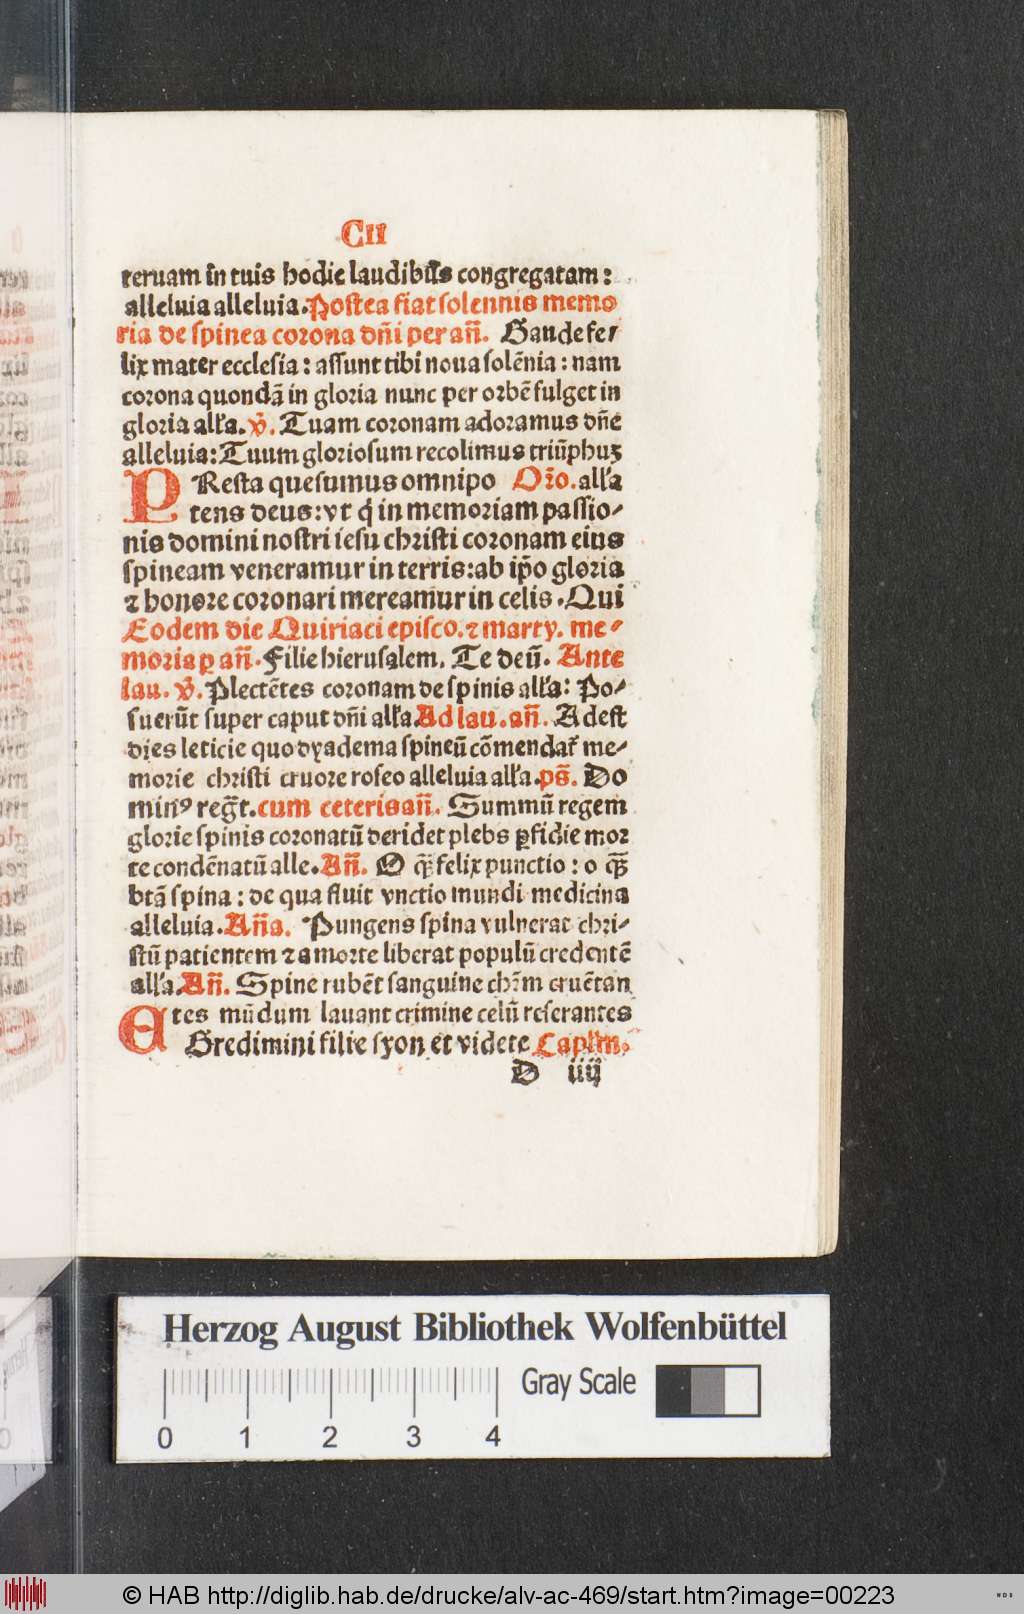 CII
teruam in tuis hodie laudibus congregatam:
alleluia alleluia. Postea fiat solennis memo
ria de spinea corona dñi per añ. Gaude fe⸗
lix mater ecclesia: assunt tibi noua solẽnia: nam
corona quondã in gloria nunc per orbẽ fulget in
gloria alła. ℣. Tuam coronam adoramus dñe
alleluia: Tuum gloriosum recolimus triũphuʒ
PResta quesumus omnipo Oro͂. alła
tens deus: vt q̇ in memoriam passio⸗
nis domini nostri iesu christi coronam eius
spineam veneramur in terris: ab ip̃o gloria
⁊ honore coronari mereamur in celis. Qui
Eodem die Quiriaci episco. ⁊ marty. me⸗
moria ꝑ añ. Filie hierusalem. Te deũ. Ante
lau. ℣. Plectẽtes coronam de spinis alła: Po⸗
suerũt super caput dñi alła. Ad lau. añ. Adest
dies leticie quo dyadema spineũ cõmendat᷑ me⸗
morie christi cruore roseo alleluia alła. ps̃. Do
minꝰ reg̃t. cum ceteris añ. Summũ regem
glorie spinis coronatũ deridet plebs ꝑfidie mor
te condẽnatũ alle. Añ. O q̃ felix punctio: o q̃
btã spina: de qua fluit vnctio mundi medicina
alleluia. Añа. Pungens spina vulnerat chri⸗
stũ patientem ⁊ a morte liberat populũ credentẽ
alła. Añ. Spine rubẽt sanguine chr̃m cruẽtan
tes mũdum lauant crimine celũ reserantes
EGredimini filie syon et videte Capłm.
D iiij
Herzog August Bibliothek Wolfenbüttel
Gray Scale
0 1 2 3 4
© HAB http://diglib.hab.de/drucke/alv-ac-469/start.htm?image=00223